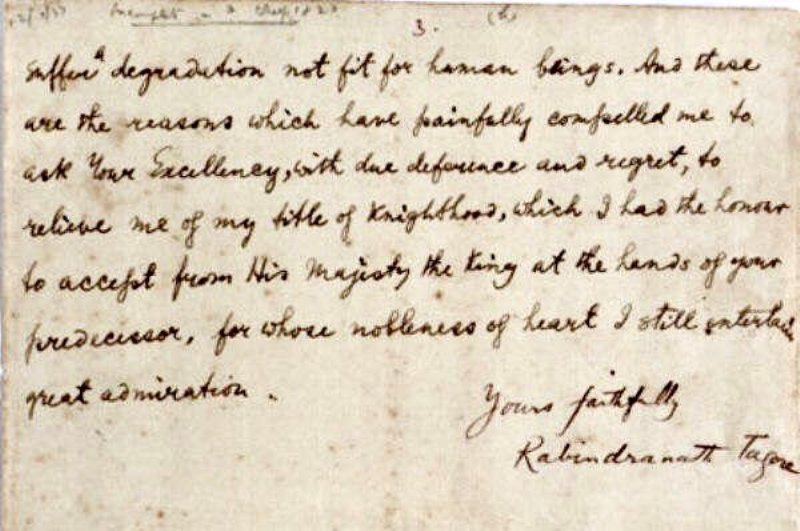 3.
suffer a degradation not fit for human beings. And these
are the reasons which have painfully compelled me to
ask Your Excellency, with due deference and regret, to
relieve me of my title of Knighthood, which I had the honour
to accept from His Majesty the King at the hands of your
predecessor, for whose nobleness of heart I still entertain
great admiration.
Yours faithfully
Rabindranath Tagore